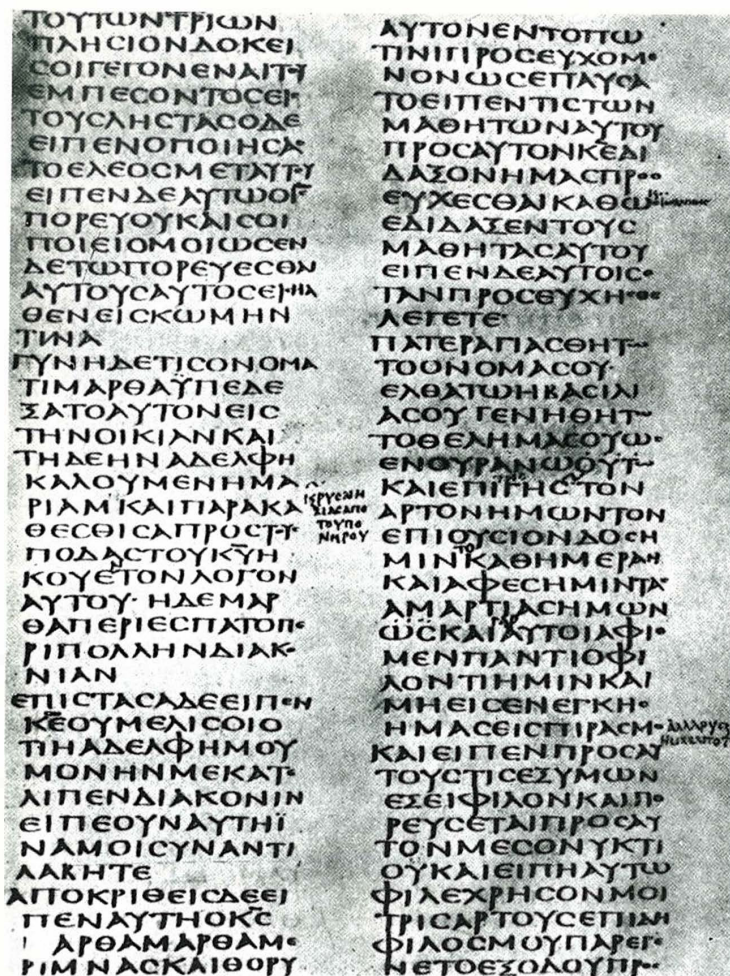 ΤΟΥΤΩΝΤΡΙΩΝ
ΠΛΗCΙΟΝΔΟΚΕΙ
CΟΙΓΕΓΟΝΕΝΑΙΤΥ
ΕΜΠΕCΟΝΤΟCΕΙC
ΤΟΥCΛΗCΤΑCΟΔΕ
ΕΙΠΕΝΟΠΟΙΗCΑ
ΤΟΕΛΕΟCΜΕΤΑΥΤΥ
ΕΙΠΕΝΔΕΑΥΤΩΟΙC
ΠΟΡΕΥΟΥΚΑΙCΟΙ
ΠΟΙΕΙΟΜΟΙΩCΕΝ
ΔΕΤΩΠΟΡΕΥΕCΘΑΙ
ΑΥΤΟΥCΑΥΤΟCΕΙCΗΛ
ΘΕΝΕΙCΚΩΜΗΝ
ΤΙΝΑ
ΓΥΝΗΔΕΤΙCΟΝΟΜΑ
ΤΙΜΑΡΘΑΫΠΕΔΕ
ΞΑΤΟΑΥΤΟΝΕΙC
ΤΗΝΟΙΚΙΑΝΚΑΙ
ΤΗΔΕΗΝΑΔΕΛΦΗ
ΚΑΛΟΥΜΕΝΗΜΑ
ΡΙΑΜΚΑΙΠΑΡΑΚΑ
ΘΕCΘΙCΑΠΡΟCΤΥ
ΠΟΔΑCΤΟΥΚΥΗ
ΚΟΥΕΤΟΝΛΟΓΟΝ
ΑΥΤΟΥ·ΗΔΕΜΑΡ
ΘΑΠΕΡΙΕCΠΑΤΟΠΕ
ΡΙΠΟΛΛΗΝΔΙΑΚΟ
ΝΙΑΝ
ΕΠΙCΤΑCΑΔΕΕΙΠΕΝ
ΚΕΟΥΜΕΛΙCΟΙΟ
ΤΙΗΑΔΕΛΦΗΜΟΥ
ΜΟΝΗΝΜΕΚΑΤΕ
ΛΙΠΕΝΔΙΑΚΟΝΙΝ
ΕΙΠΕΟΥΝΑΥΤΗΪ
ΝΑΜΟΙCΥΝΑΝΤΙ
ΛΑΒΗΤΕ
ΑΠΟΚΡΙΘΕΙCΔΕΕΙ
ΠΕΝΑΥΤΗΟΚC
ΑΡΘΑΜΑΡΘΑΜΕ
ΡΙΜΝΑCΚΑΙΘΟΡΥ
ΡΥCΑΙΗ
ΜΑCΑΠΟ
ΤΟΥΠΟ
ΝΗΡΟΥ
ΑΥΤΟΝΕΝΤΟΠΩ
ΤΙΝΙΠΡΟCΕΥΧΟΜΕ
ΝΟΝΩCΕΠΑΥCΑ
ΤΟΕΙΠΕΝΤΙCΤΩΝ
ΜΑΘΗΤΩΝΑΥΤΟΥ
ΠΡΟCΑΥΤΟΝΚΕΔΙ
ΔΑΞΟΝΗΜΑCΠΡΟC
ΕΥΧΕCΘΑΙΚΑΘΩC
ΕΔΙΔΑΞΕΝΤΟΥC
ΜΑΘΗΤΑCΑΥΤΟΥ
ΕΙΠΕΝΔΕΑΥΤΟΙCΟ
ΤΑΝΠΡΟCΕΥΧΗCΘΕ
ΛΕΓΕΤΕ
ΠΑΤΕΡΑΓΙΑCΘΗΤΩ
ΤΟΟΝΟΜΑCΟΥ·
ΕΛΘΑΤΩΗΒΑCΙΛΙ
ΑCΟΥΓΕΝΗΘΗΤΩ
ΤΟΘΕΛΗΜΑCΟΥΩC
ΕΝΟΥΡΑΝΩΟΥΤΩ
ΚΑΙΕΠΙΓΗCΤΟΝ
ΑΡΤΟΝΗΜΩΝΤΟΝ
ΕΠΙΟΥCΙΟΝΔΟCΗ
ΜΙΝΤΟΚΑΘΗΜΕΡΑΝ
ΚΑΙΑΦΕCΗΜΙΝΤΑC
ΑΜΑΡΤΙΑCΗΜΩΝ
ΩCΚΑΙΓΑΡΑΥΤΟΙΑΦΙΟ
ΜΕΝΠΑΝΤΙΟΦΙ
ΛΟΝΤΙΗΜΙΝΚΑΙ
ΜΗΕΙCΕΝΕΓΚΗC
ΗΜΑCΕΙCΠΙΡΑCΜΟ ΑΛΛΑΡΥC
ΚΑΙΕΙΠΕΝΠΡΟCΑΥ
ΤΟΥCΤΙCΕΞΥΜΩΝ
ΕΞΕΙΦΙΛΟΝΚΑΙΠΟ
ΡΕΥCΕΤΑΙΠΡΟCΑΥ
ΤΟΝΜΕCΟΝΥΚΤΙ
ΟΥΚΑΙΕΙΠΗΑΥΤΩ
ΦΙΛΕΧΡΗCΟΝΜΟΙ
ΤΡΙCΑΡΤΟΥCΕΠΙΔΗ
ΦΙΛΟCΜΟΥΠΑΡΕΓΕ
ΝΕΤΟΕΞΟΔΟΥΠΡΟC